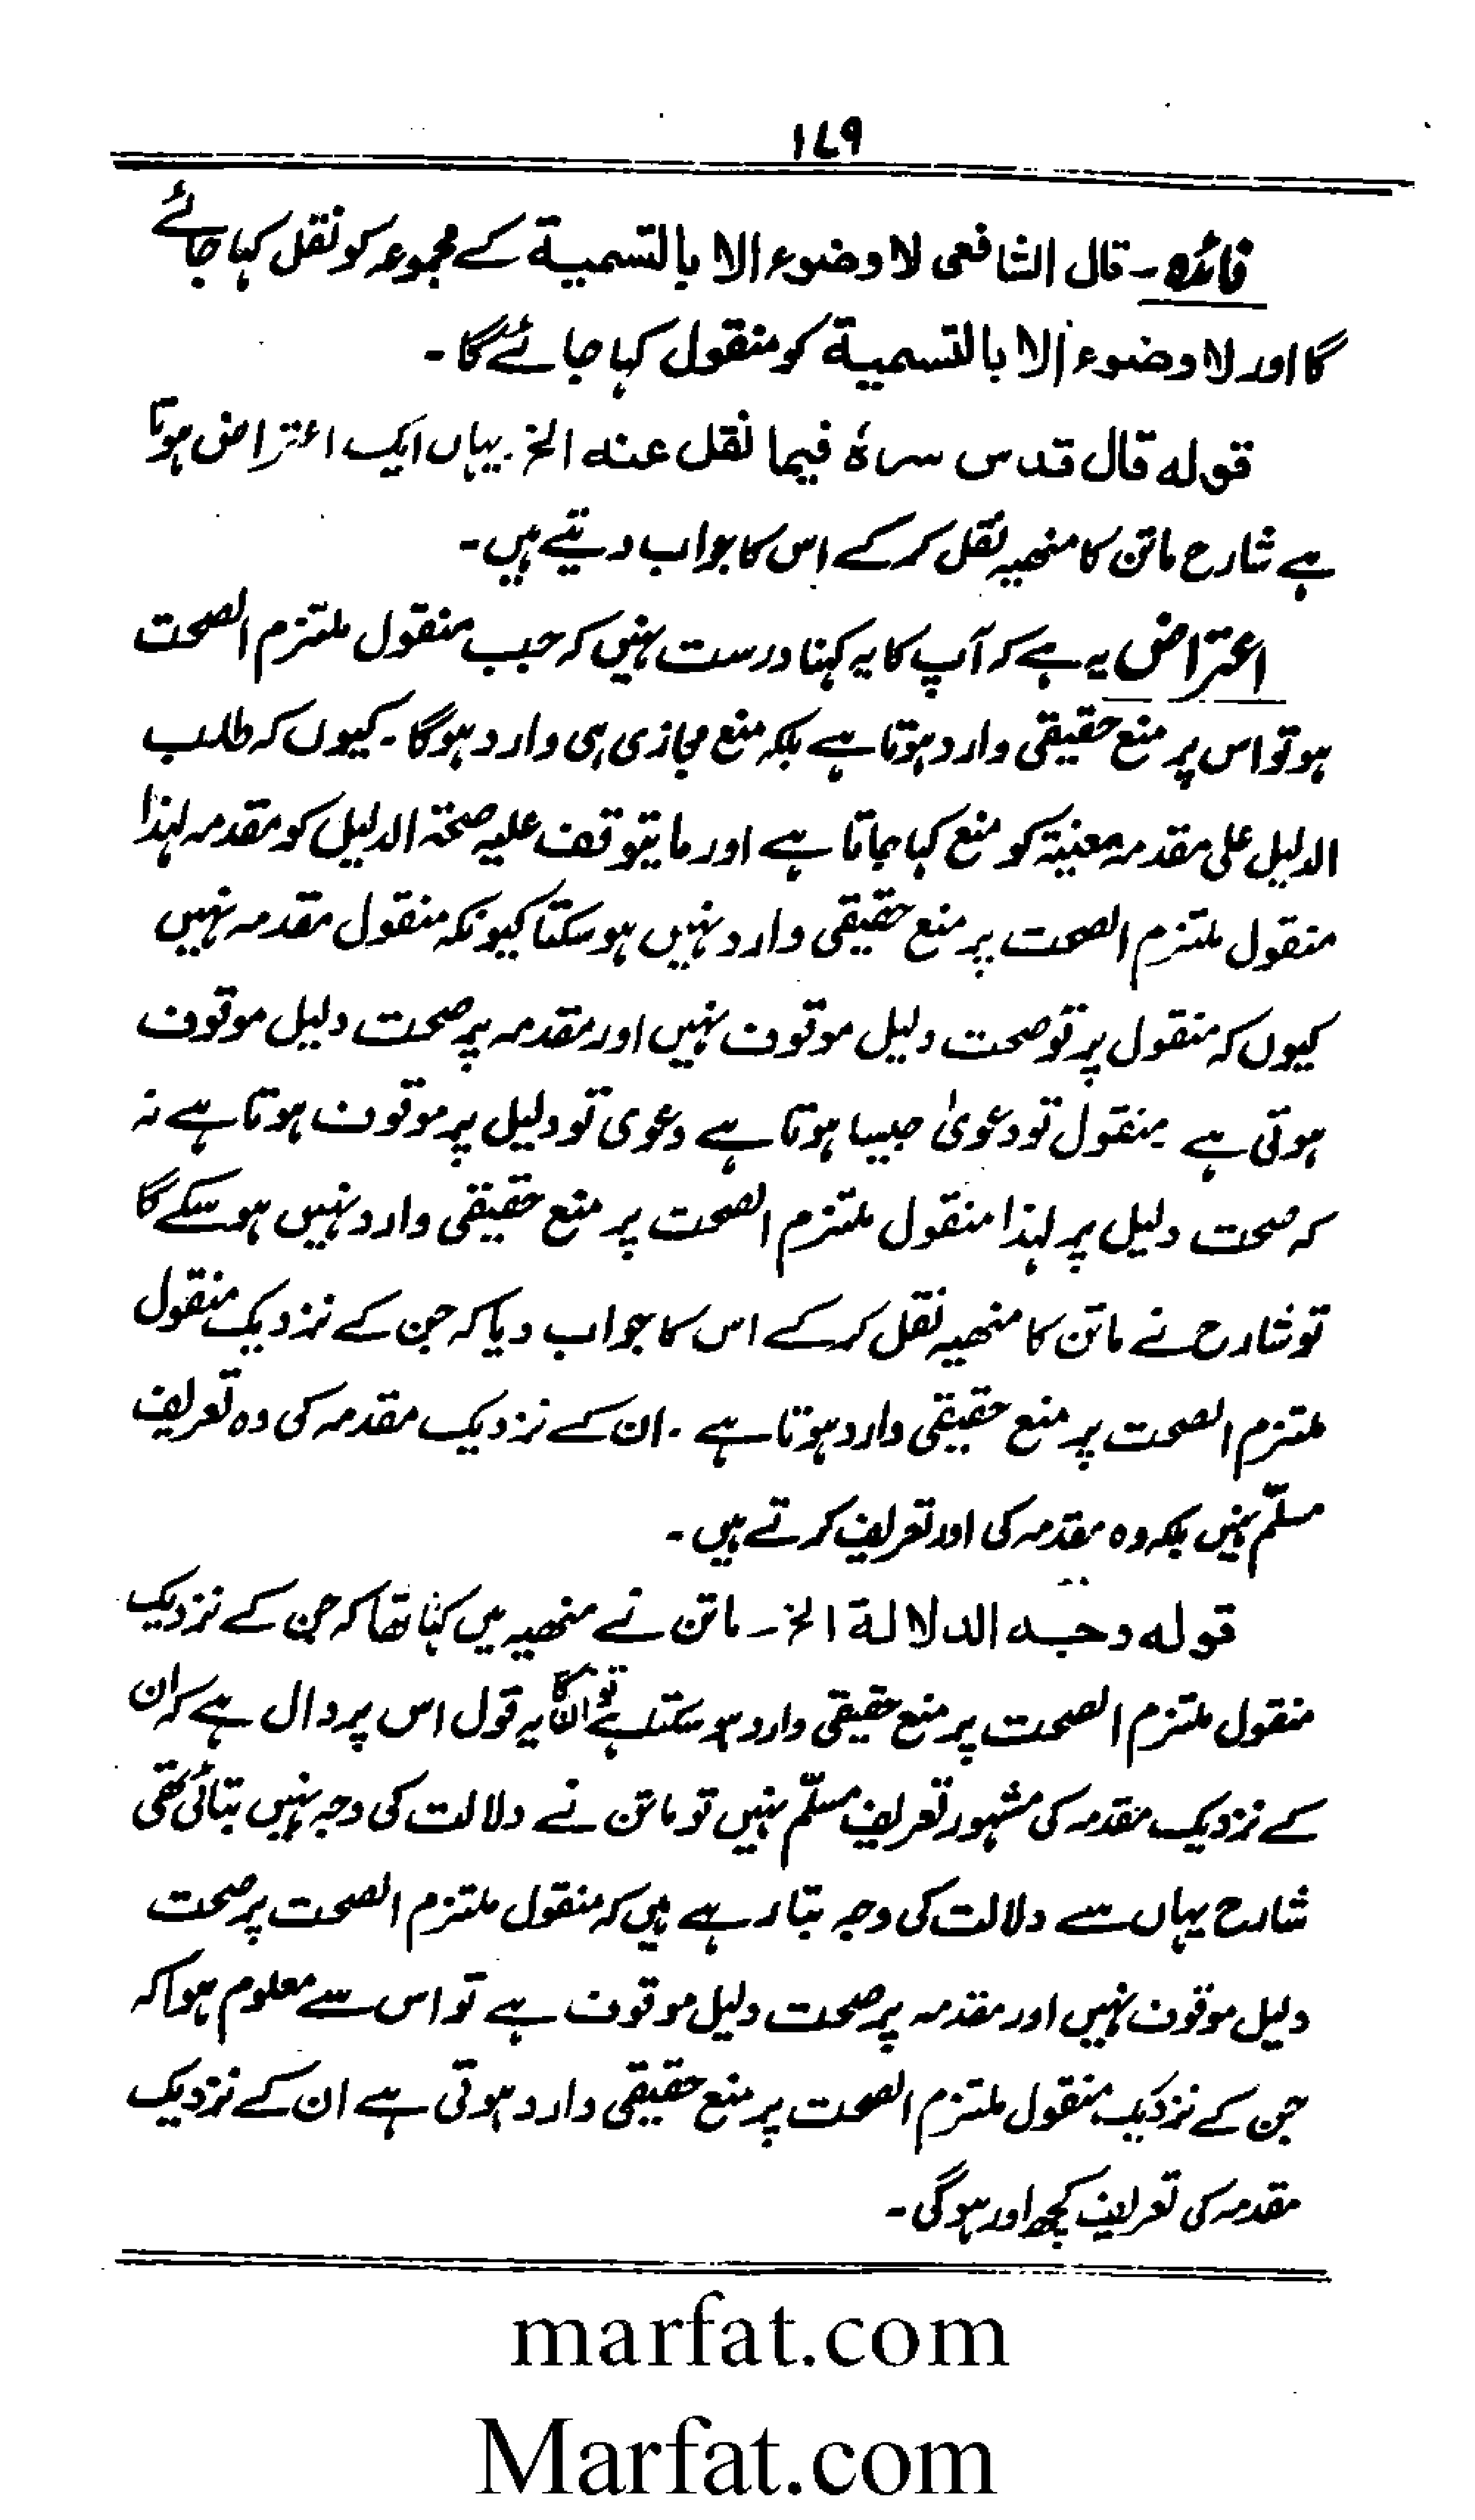 ۱۷۹
فائدہ۔ قال الشافعی لا وضوء الا بالتسمیة کے مجموعہ کو نقل کہا جائے
گا اور لا وضوء الا بالتسمیة کو منقول کہا جائے گا۔
قولہ قال قدس سرہٗ فیما نقل عنہ الخ۔ یہاں ایک اعتراض ہوتا
ہے شارح ماتن کا منھیہ نقل کر کے اس کا جواب دیتے ہیں۔
اعتراض یہ ہے کہ آپ کا یہ کہنا درست نہیں کہ جب منقول ملتزم الصحت
ہو تو اس پر منع حقیقی وارد ہوتا ہے بلکہ منع مجازی ہی وارد ہوگا۔ کیوں کہ طلب
الدلیل علی مقدمہ معنیۃ کو منع کہا جاتا ہے اور ما یتوقف علیہ صحۃ الدلیل کو مقدمہ لہذا
منقول ملتزم الصحت پر منع حقیقی وارد نہیں ہو سکتا کیونکہ منقول مقدمہ نہیں
کیوں کہ منقول پر تو صحت دلیل موقوف نہیں اور مقدمہ پر صحت دلیل موقوف
ہوتی ہے منقول تو دعویٰ جیسا ہوتا ہے دعوی تو دلیل پر موقوف ہوتا ہے نہ
کہ صحت دلیل پر لہذا منقول ملتزم الصحت پر منع حقیقی وارد نہیں ہو سکے گا
تو شارح نے ماتن کا منھیہ نقل کر کے اس کا جواب دیا کہ جن کے نزدیک منقول
ملتزم الصحت پر منع حقیقی وارد ہوتا ہے۔ ان کے نزدیک مقدمہ کی وہ تعریف
مسلّم نہیں بلکہ وہ مقدمہ کی اور تعریف کرتے ہیں۔
قولہ وجہ الدلالة الخ۔ ماتن نے منھیہ میں کہا تھا کہ جن کے نزدیک
منقول ملتزم الصحت پر منع حقیقی وارد ہو سکتا ہے تو ان کا یہ قول اس پر دال ہے کہ ان
کے نزدیک مقدمہ کی مشہور تعریف مسلّم نہیں تو ماتن نے دلالت کی وجہ نہیں بتائی تھی
شارح یہاں سے دلالت کی وجہ بتا رہے ہیں کہ منقول ملتزم الصحت پر صحت
دلیل موقوف نہیں اور مقدمہ پر صحت دلیل موقوف ہے تو اس سے معلوم ہوا کہ
جن کے نزدیک منقول ملتزم الصحت پر منع حقیقی وارد ہوتی ہے ان کے نزدیک
مقدمہ کی تعریف کچھ اور ہوگی۔
marfat.com
Marfat.com